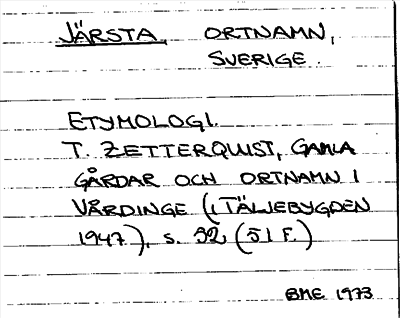 JÄRSTA, ORTNAMN,
SVERIGE.
ETYMOLOGI.
T. ZETTERQUIST, GAMLA
GÅRDAR OCH ORTNAMN I
VÅRDINGE (I TÄLJEBYGDEN
1947), s. 32 (51 F.)
BME 1973